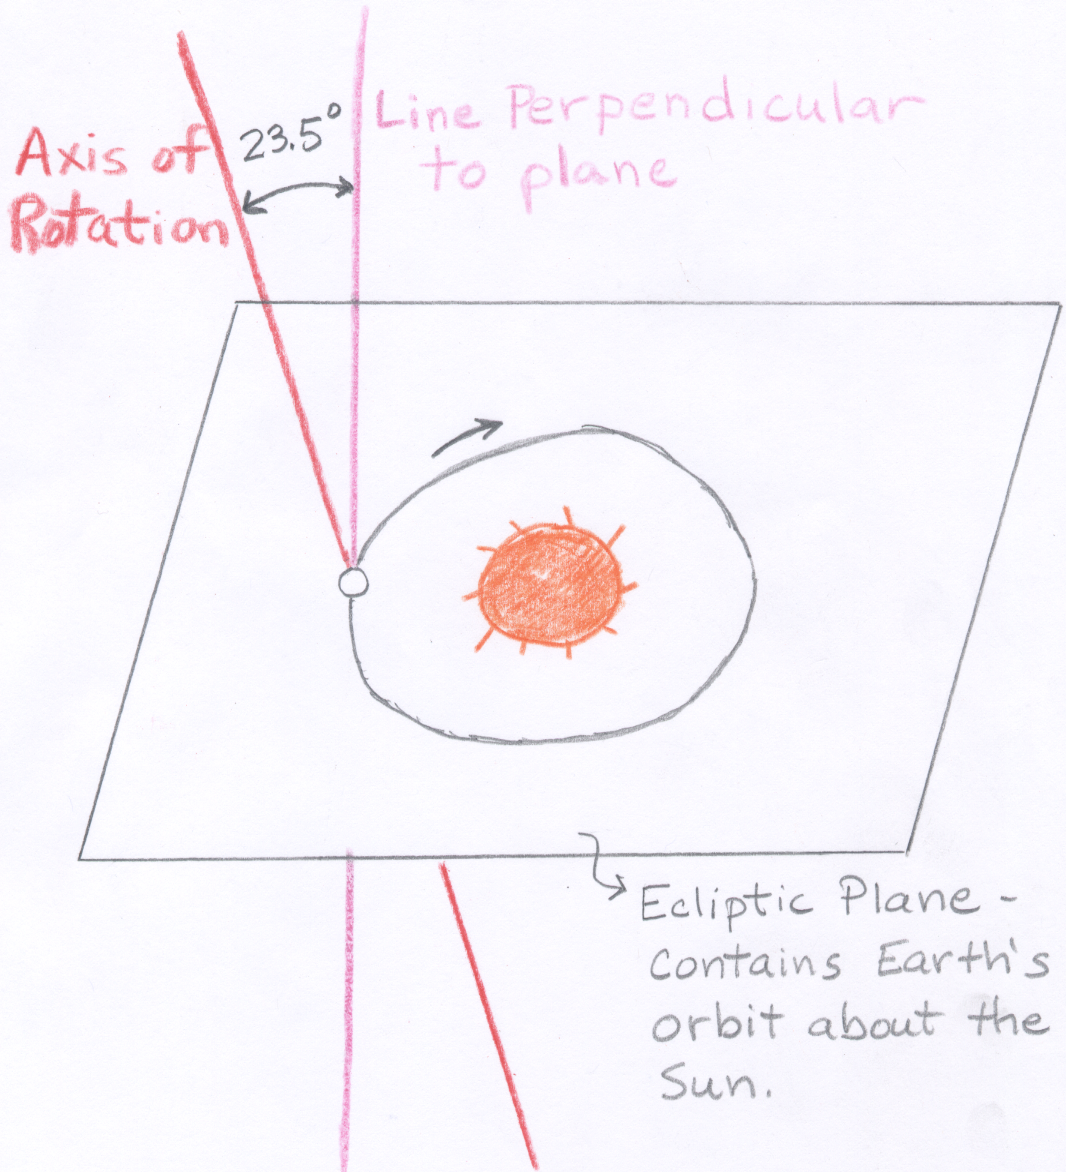 Axis of
Rotation
23.5°
Line Perpendicular
to plane
Ecliptic Plane -
Contains Earth's
orbit about the
Sun.